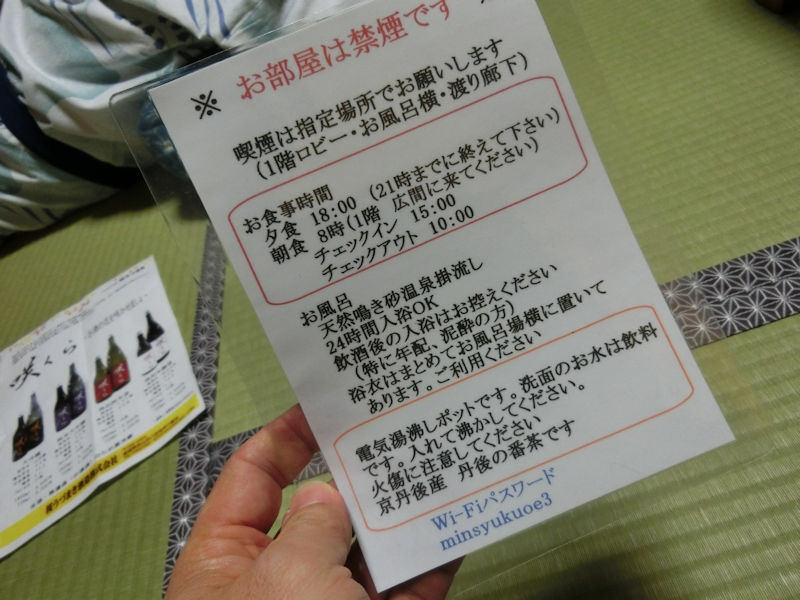 ※ お部屋は禁煙です
喫煙は指定場所でお願いします
（1階ロビー・お風呂横・渡り廊下）
お食事時間
夕食 18:00 （21時までに終えて下さい）
朝食 8時（1階 広間に来てください）
チェックイン 15:00
チェックアウト 10:00
お風呂
天然鳴き砂温泉掛流し
24時間入浴OK
飲酒後の入浴はお控えください
（特に年配、泥酔の方）
浴衣はまとめてお風呂場横に置いて
あります。ご利用ください
電気湯沸しポットです。洗面のお水は飲料
です。入れて沸かしてください。
火傷に注意してください
京丹後産 丹後の番茶です
Wi-Fiパスワード
minsyukuoe3
咲くら